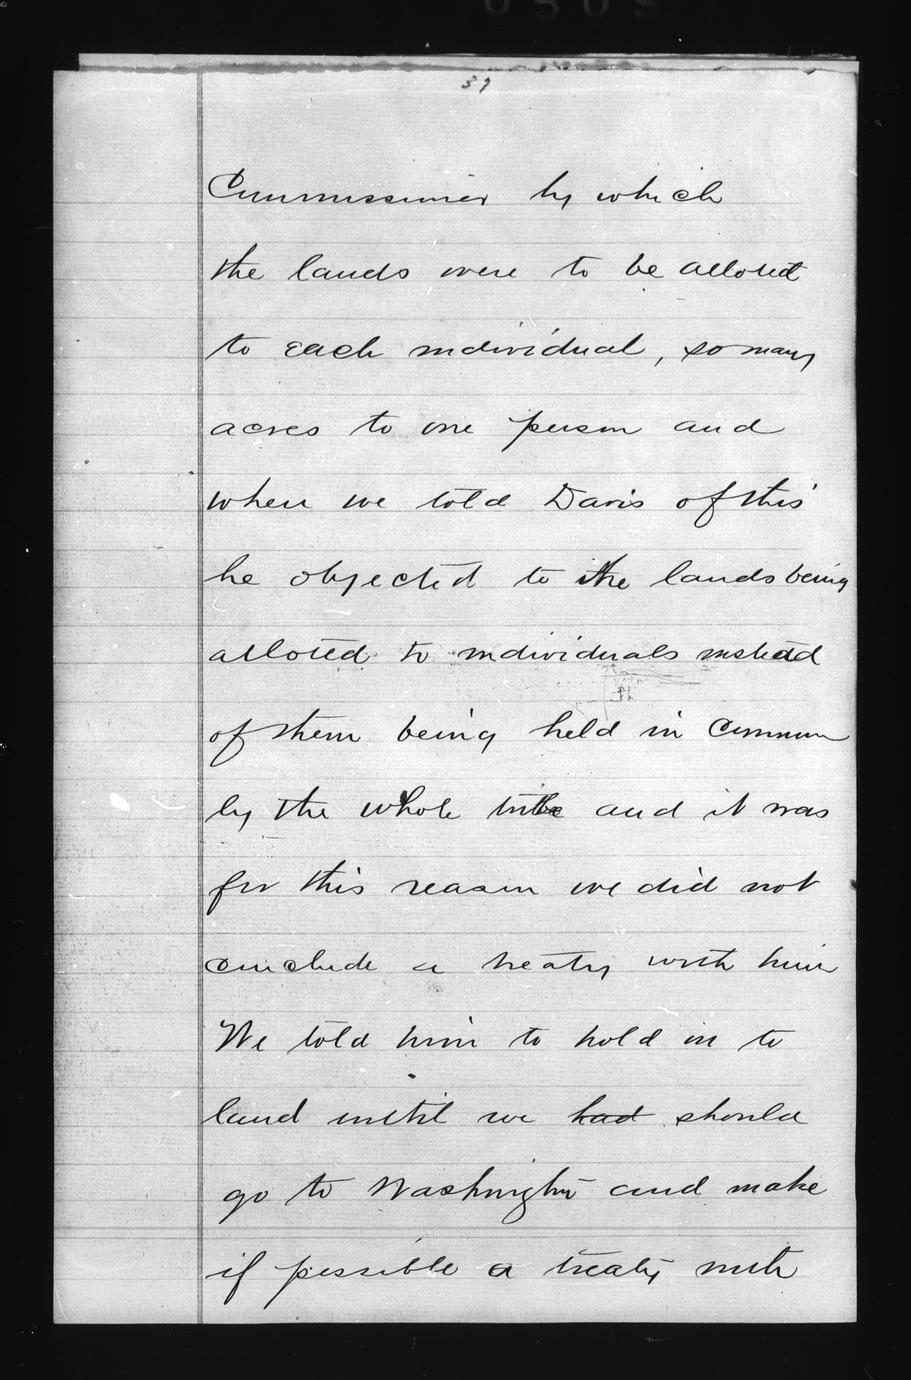 39
Commissioner by which
the lands were to be alloted
to each individual, so many
acres to one person and
when we told Davis of this
he objected to the lands being
alloted to individuals instead
of them being held in common
by the whole tribe and it was
for this reason we did not
conclude a treaty with him
We told him to hold on to
land until we had should
go to Washington and make
if possible a treaty with